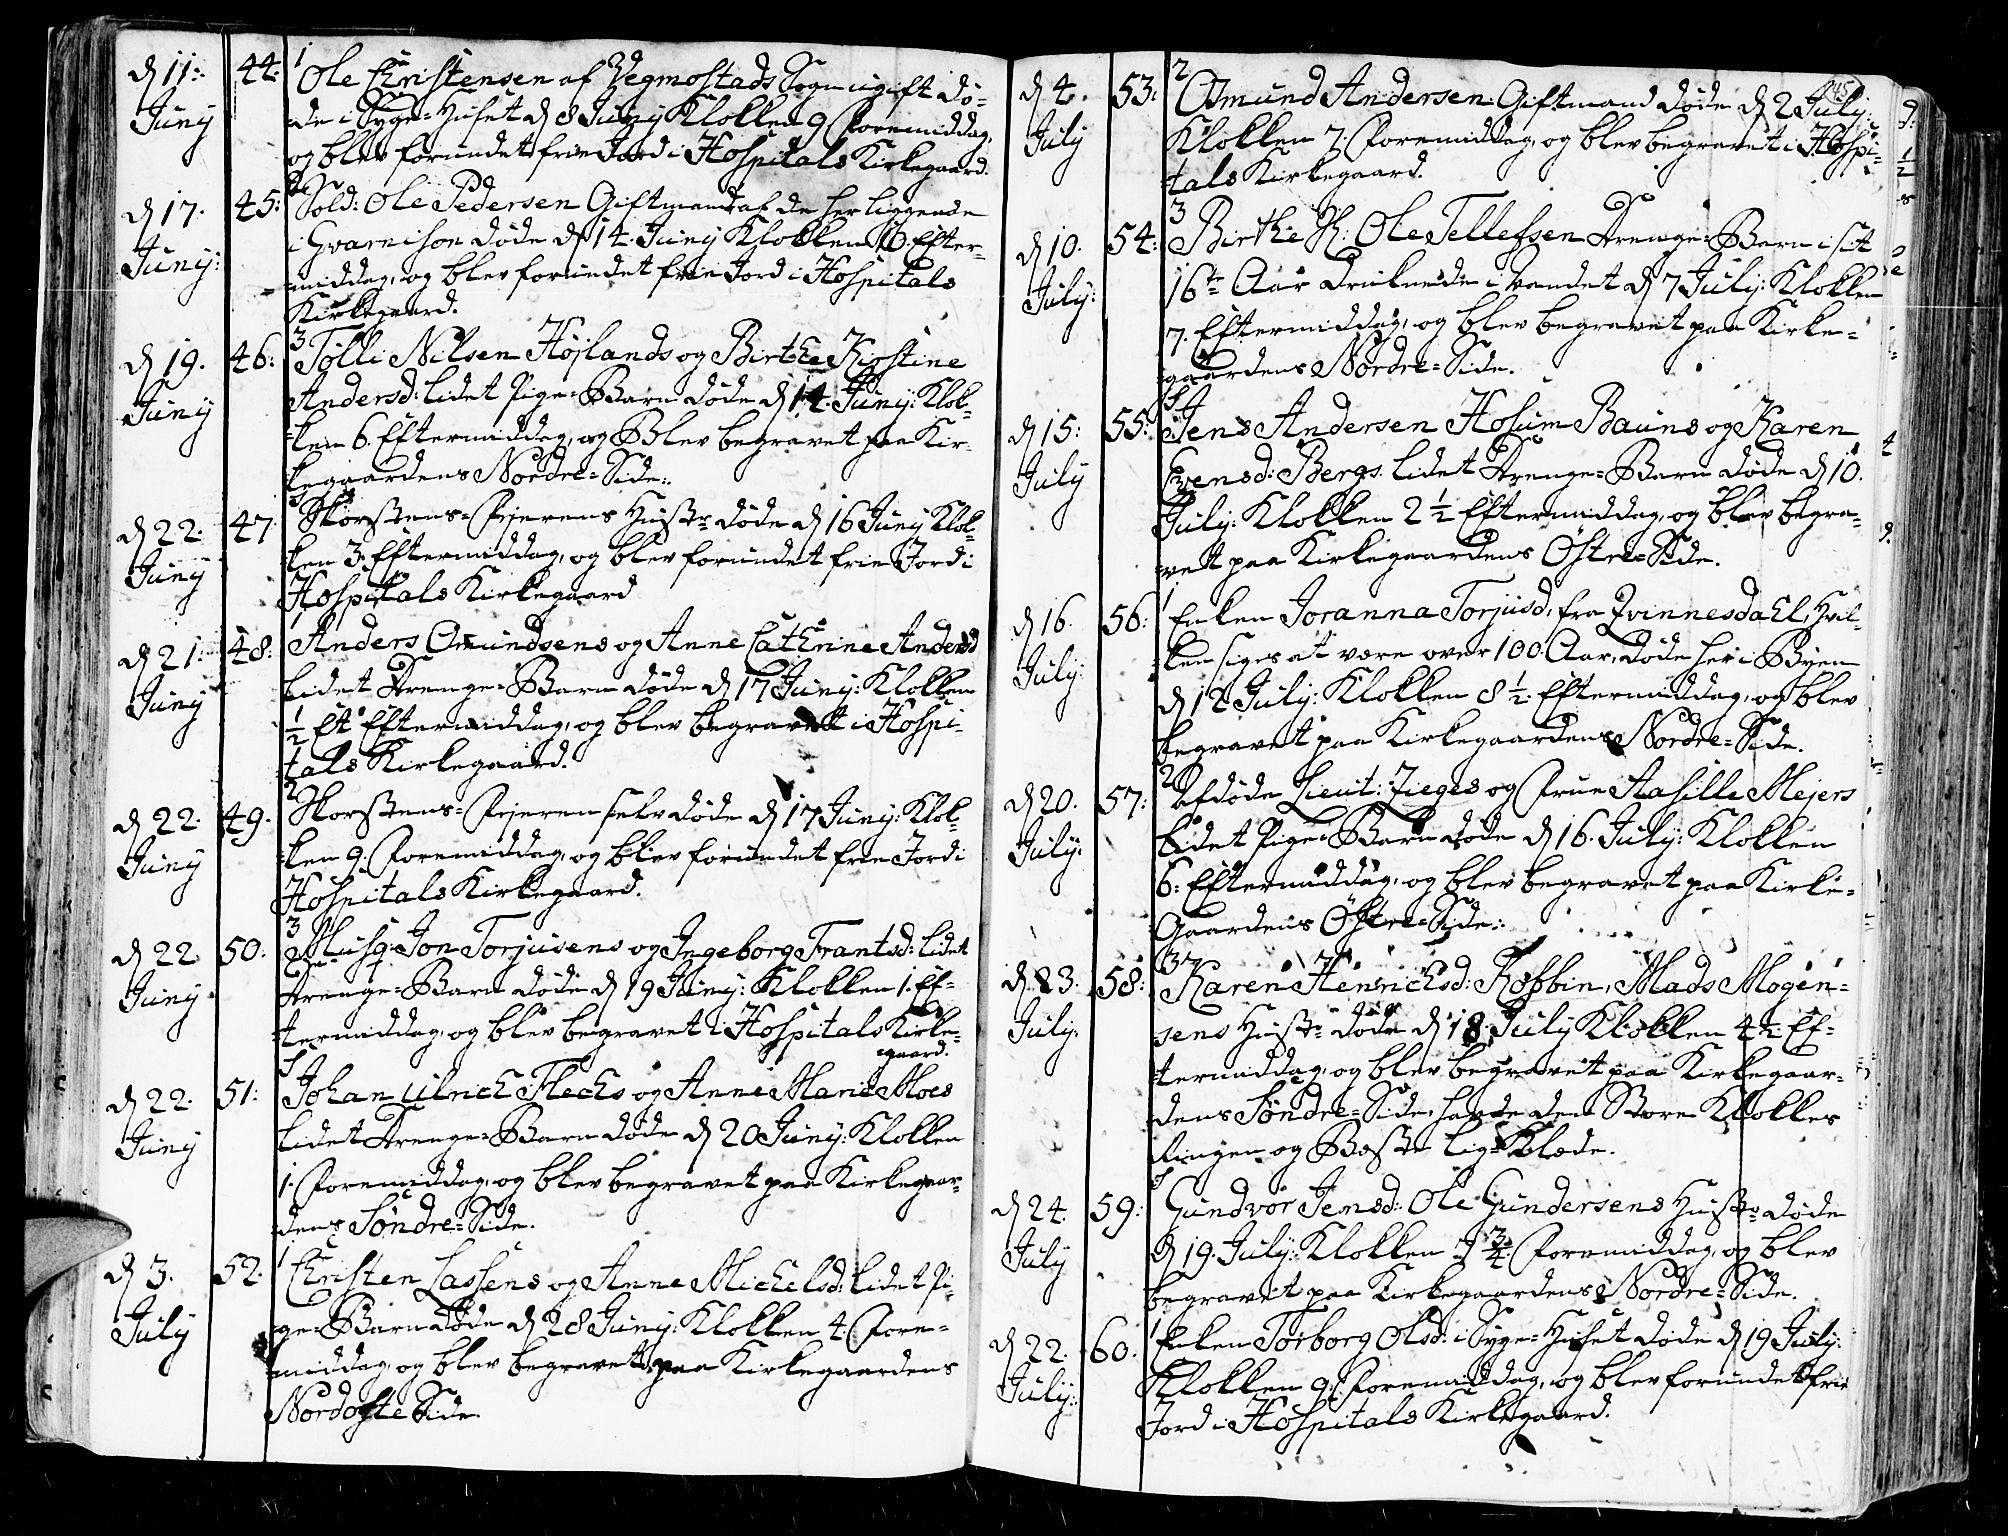 d 11: Juny 44: 1 Ole Christensen af Vegmostads Sogn ugift dø-
de i Syge-Huset d 8 Juny Klokken 9 Foremiddag,
og blev forundet frie Jord i Hospitals Kirkegaard.
d 17. Juny: 45: 2 Sold: Ole Pedersen Giftmand af de her liggende
i Gvarnison døde d 14. Juny Klokken 10. Efter-
middag, og blev forundet frie Jord i Hospitals
Kirkegaard.
d 19. Juny 46: 3 Tølli Nilsen Højlands og Birthe Kirstine
Andersd: lidet Pige-Barn døde d 14. Juny: Klok-
ken 6. Eftermiddag, og Blev begravet paa Kir-
kegaardens Nordre-Side:
d 22. Juny 47 Skorstens-Fejerens Hustr: døde d 16 Juny Klok-
ken 3. Eftermiddag, og blev forundet frie Jord i
Hospitals Kirkegaard
d 21: Juny 48: 1 Anders Omundsens og Anne Cathrine Andersd
lidet Drenge-Barn døde d 17 Juny: Klokken
½ Et Eftermiddag, og blev begravet i Hospi-
tals Kirkegaard.
d 22. Juny 49. 2 Skorstens-Fejeren selv døde d 17 Juny: Klok-
ken 9. Foremiddag, og blev forundet frie Jord i
Hospitals Kirkegaard.
d 22 Juny 50: 3 Musq: Jon Torjusens og Ingeborg Frantsd: lidet
Drenge-Barn døde d 19 Juny: Klokken 1. Ef-
termiddag, og blev begravet i Hospitals Kirke-
gaard.
d 22. Juny 51: Johan Ulrich Flechs og Anne Marie Moes
lidet Drenge-Barn døde d 20 Juny: Klokken
1. Foremiddag, og blev begravet paa Kirkegaar-
dens Søndre-Side.
d 3. July 52. 1 Christen Lassens og Anne Michelsd: lidet Pi-
ge-Barn døde d 28 Juny: Klokken 4. Fore-
middag, og blev begravet paa Kirkegaardens
Nordoste Side.
d 4. July 53: 2 Osmund Andersen Giftmand døde d 2 July:
Klokken 7. Foremiddag, og blev begravet i Hospi-
tals Kirkegaard.
d 10. July: 54: 3 Birthe Ole Tellefsen Drenge-Barn i sit
16te Aar druknede i Vandet d 7 July: Klokken
7. Eftermiddag, og blev begravet paa Kirke-
gaardens Nordre-Side.
d 15: July 55: Jens Andersen Hosum Bauns og Karen
Evensd: Bergs lidet Drenge-Barn døde d 10.
July: Klokken 2 ½ Eftermiddag, og blev begra-
vet paa Kirkegaardens Østre-Side.
d 16. July: 56: 1 Enken Joranna Torjusd, fra Qvinnesdahl, Hvil-
ken siges at være over 100 Aar, døde her i Byen
d 12 July: Klokken 8 ½. Eftermiddag, og blev
begravet paa Kirkegaardens Nordre-Side.
d 20. July: 57: 2 Afdøde Lieut: Zieges og Frue Aasille Mejers
lidet Pige-Barn døde d 16. July: Klokken
6: Eftermiddag, og blev begravet paa Kirke-
Gaardens Østre-Side:
d. 23. July. 58: 3 Karen Henrichsd: Robbin, Mads Mogen-
sens Hustr: døde d 18 July Klokken 4 ½. Ef-
termiddag, og blev begravet paa Kirkegaar-
dens Søndre-Side, havde den Store Klokkes
Ringen og Beste Lig-Klæde.
d 24. July 59: Gundvor Jensd: Ole Gundersens Hustr: døde
d 19. July: Klokken ¾. Foremiddag, og blev
begravet paa Kirkegaardens Nordre-Side.
d 22. July: 60. 1 Enken Torborg Olsd: i Syge-Huset døde d 19 July:
Klokken 9. Foremiddag, og blev forundet frie
Jord i Hospitals Kirkegaard.